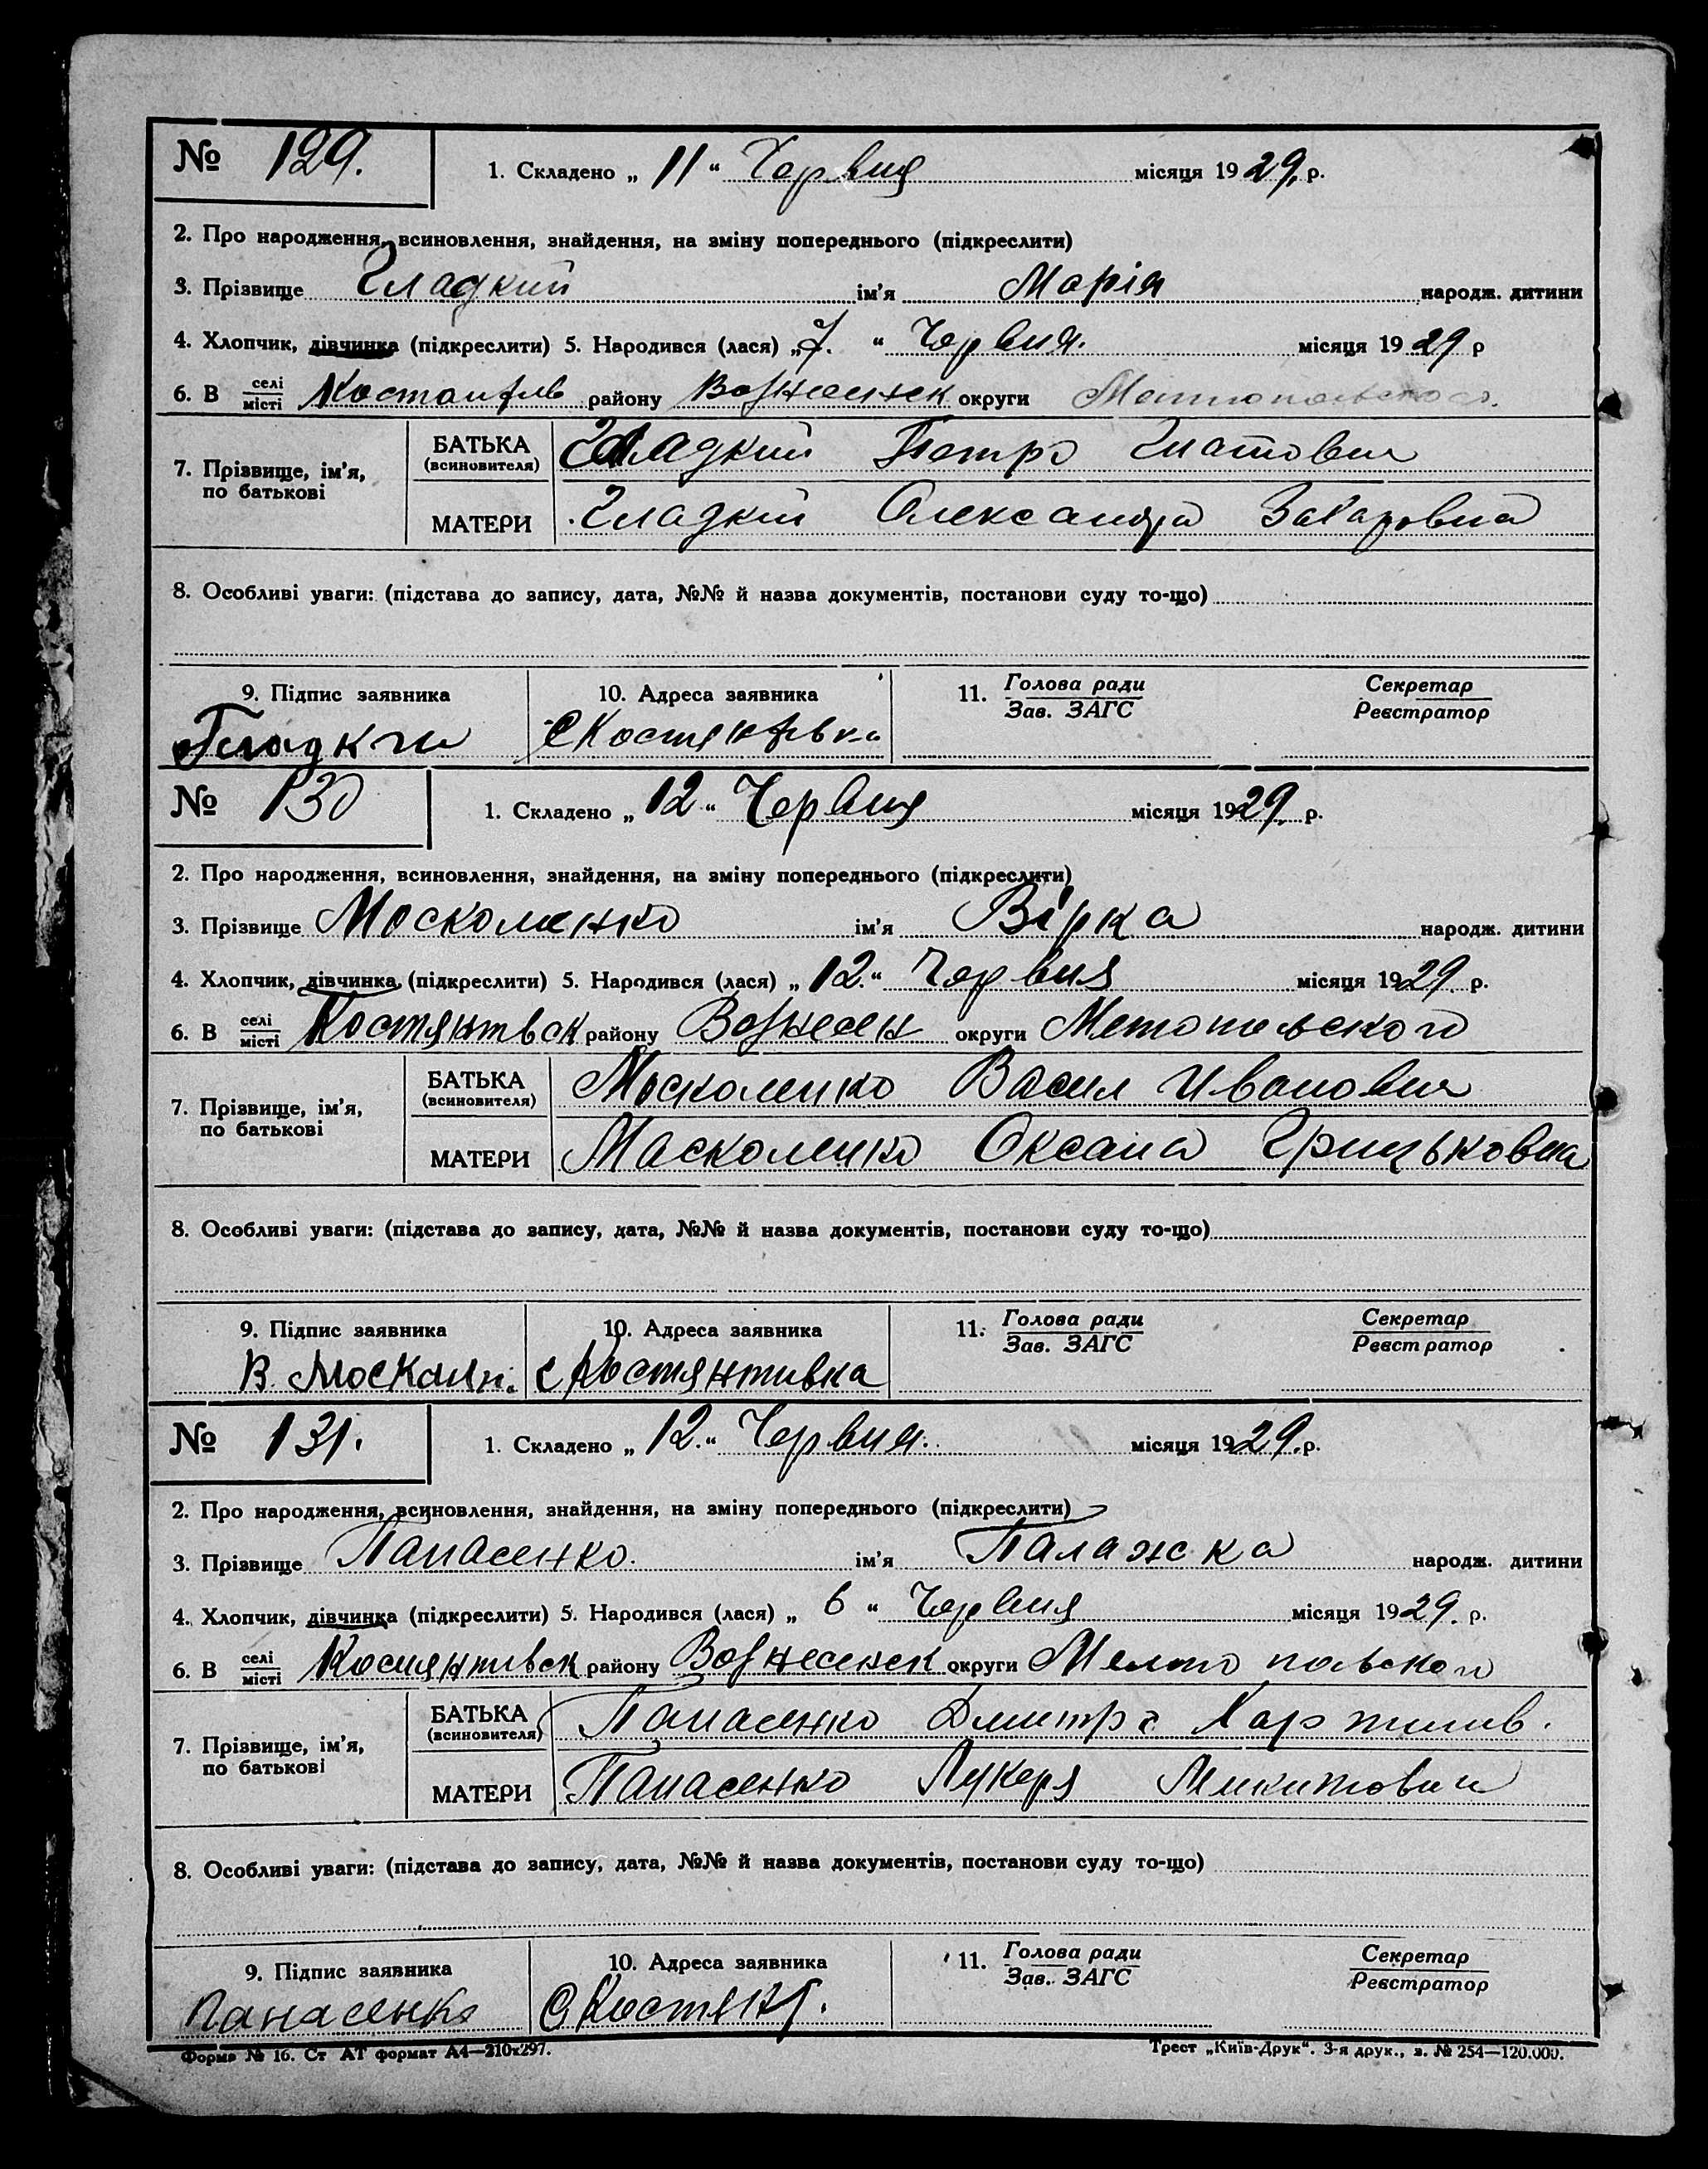 № 129. 1. Складено „ 11 “ Червня місяця 1929. р.
2. Про народження, всиновлення, знайдення, на зміну попереднього (підкреслити)
3. Прізвище Гладкий ім'я Марія народж. дитини
4. Хлопчик, дівчинка (підкреслити) 5. Народився (лася) „ 7. “ Червня. місяця 1929 р
6. В селі місті району Вознесенськ округи
7. Прізвище, ім'я, по батькові
БАТЬКА (всиновителя) Гладкий Петро
МАТЕРИ Гладкий Олександра Захаровна
8. Особливі уваги: (підстава до запису, дата, №№ й назва документів, постанови суду то-що)
9. Підпис заявника 10. Адреса заявника 11. Голова ради Зав. ЗАГС Секретар Реєстратор
Гладкий С Костянтівка
№ 130 1. Складено „ 12 “ Червня місяця 1929. р.
2. Про народження, всиновлення, знайдення, на зміну попереднього (підкреслити)
3. Прізвище Москоленко ім'я Вірка народж. дитини
4. Хлопчик, дівчинка, (підкреслити) 5. Народився (лася) „ 12. “ Червня місяця 1929. р.
6. В селі місті Костянтвск району Вознесен округи Метопольского
7. Прізвище, ім'я, по батькові
БАТЬКА (всиновителя) Москоленко Васил Иванович
МАТЕРИ Масколенко Оксана Грицьковна
8. Особливі уваги: (підстава до запису, дата, №№ й назва документів, постанови суду то-що)
9. Підпис заявника 10. Адреса заявника 11. Голова ради Зав. ЗАГС Секретар Реєстратор
В. с Костянтивка
№ 131. 1. Складено „ 12. “ Червня. місяця 1929. р.
2. Про народження, всиновлення, знайдення, на зміну попереднього (підкреслити)
3. Прізвище Панасенко. ім'я Палажка народж. дитини
4. Хлопчик, дівчинка (підкреслити) 5. Народився (лася) „ 6 “ Червня місяця 1929. р.
6. В селі місті Костянтивск району Вознесенск округи Мелитопольского
7. Прізвище, ім'я, по батькові
БАТЬКА (всиновителя) Панасенко Дмитро
МАТЕРИ Панасенко Лукеря Микитовни
8. Особливі уваги: (підстава до запису, дата, №№ й назва документів, постанови суду то-що)
9. Підпис заявника 10. Адреса заявника 11. Голова ради Зав. ЗАГС Секретар Реєстратор
Панасенко С Костянт.
Форма № 16. Ст АТ формат А4—210х297. Трест „Київ-Друк“. 3-я друк., з. № 254—120.000.